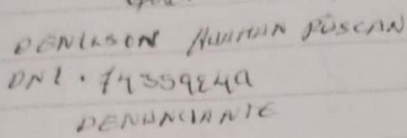 DENILSON HUAMAN PUSCAN
DNI. 74359249
DENUNCIANTE